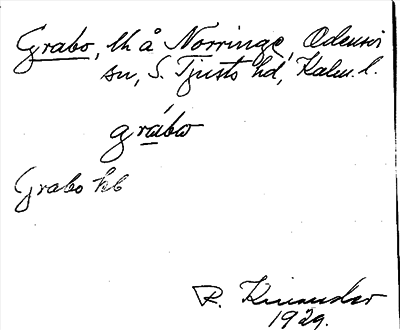 Grabo, lh å Norringe, Odensvi
sn, S. Tjusts hd, Kalm. l.
gràbω
Grabo hb
R. Kinander
1929.